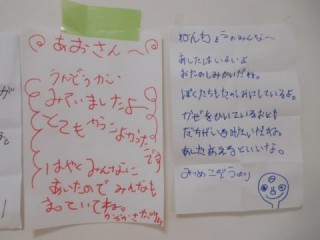 あおさんへ
うんどうかい
みていましたよー
とてもかっこよかった
です
はやとみんなに
あいたいので みんなも
まっていてね。
みんなへ
あしたはいよいよ
おたのしみかいだね。
ぼくたちもたのしみにしているよ。
かぜをひいているおとも
だちがいるみたいだね。
あしたあえるといいな。
みつめこぞうより
が